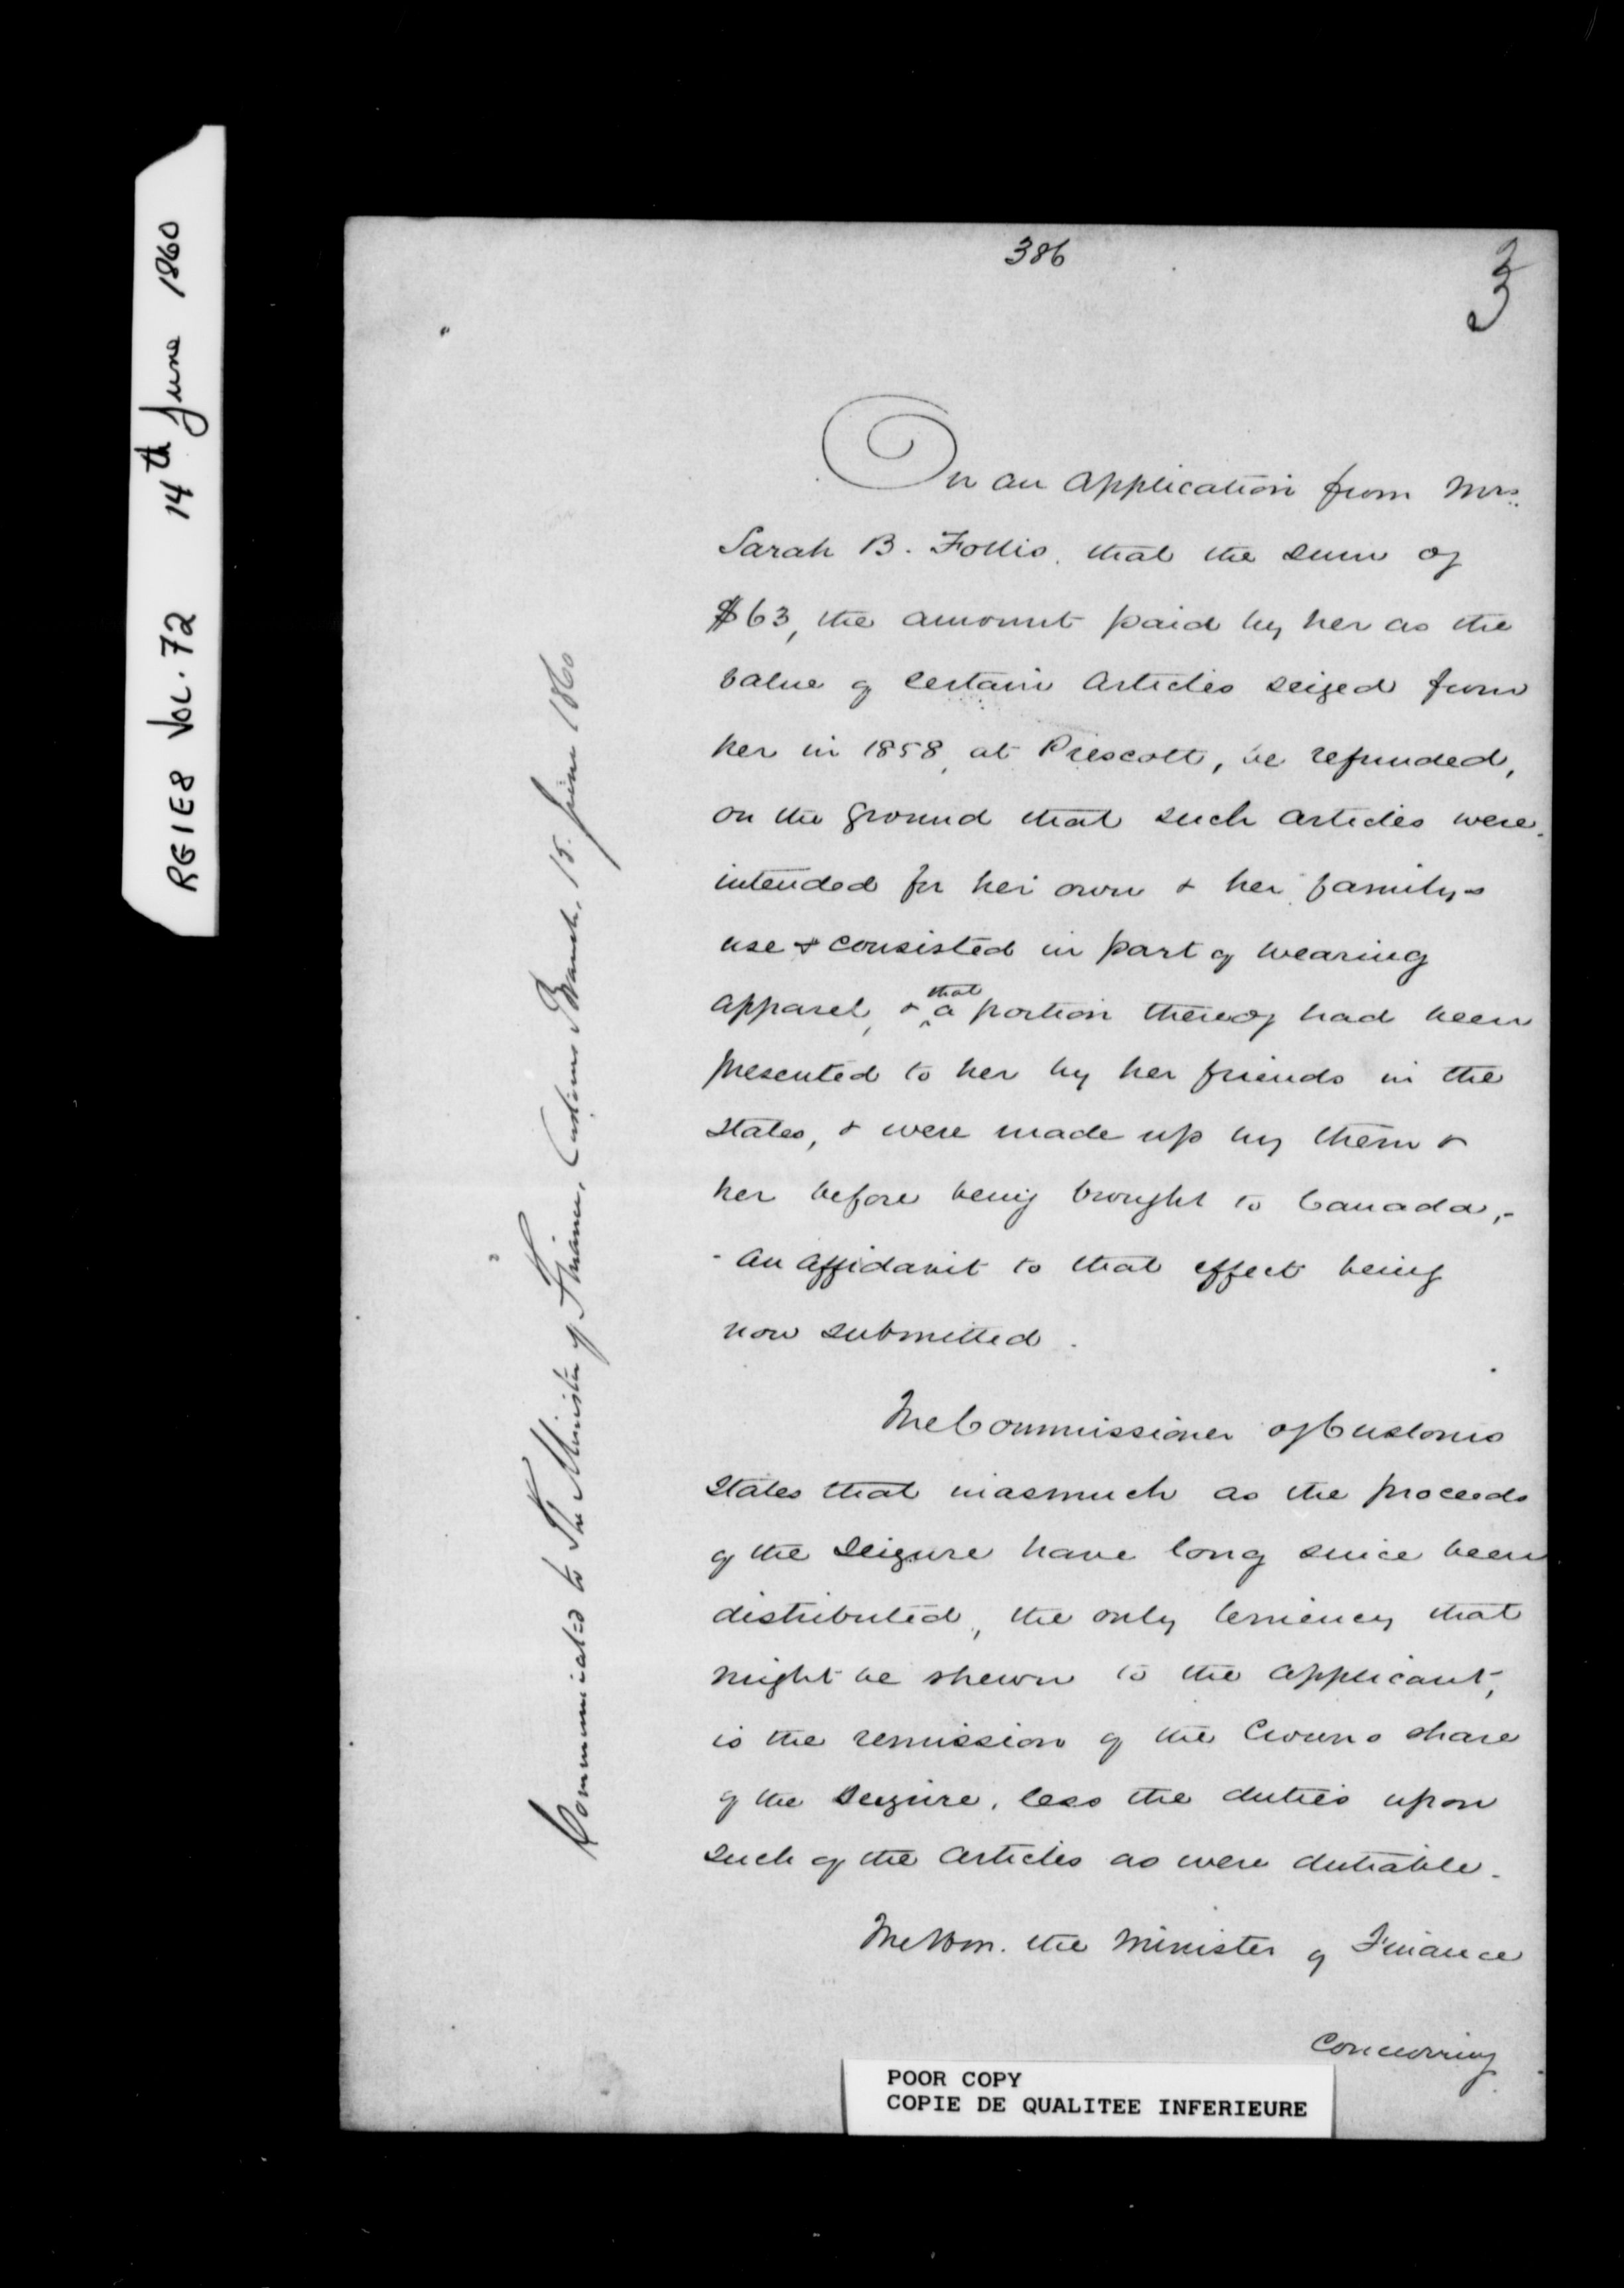 RG1E8 VOL. 72 14th June 1860
386
3
On an application from Mrs.
Sarah B. Follis, that the sum of
$63, the amount paid by her as the
value of certain Articles seized from
her in 1858, at Prescott, be refunded,
on the ground that such articles were
intended for her own & her family's
use & consisted in part of wearing
apparel, & that a portion thereof had been
presented to her by her friends in the
States, & were made up by them &
her before being brought to Canada,-
- an affidavit to that effect being
now submitted.
The Commissioner of Customs
States that inasmuch as the proceeds
of the Seizure have long since been
distributed, the only leniency that
might be shewn to the applicant,
is the remission of the Crown's share
of the Seizure, less the duties upon
such of the articles as were dutiable.
The Hon. the Minister of Finance
concurring
Communicated to The Minister of Finance, Customs Branch, 15. June 1860
POOR COPY
COPIE DE QUALITEE INFERIEURE